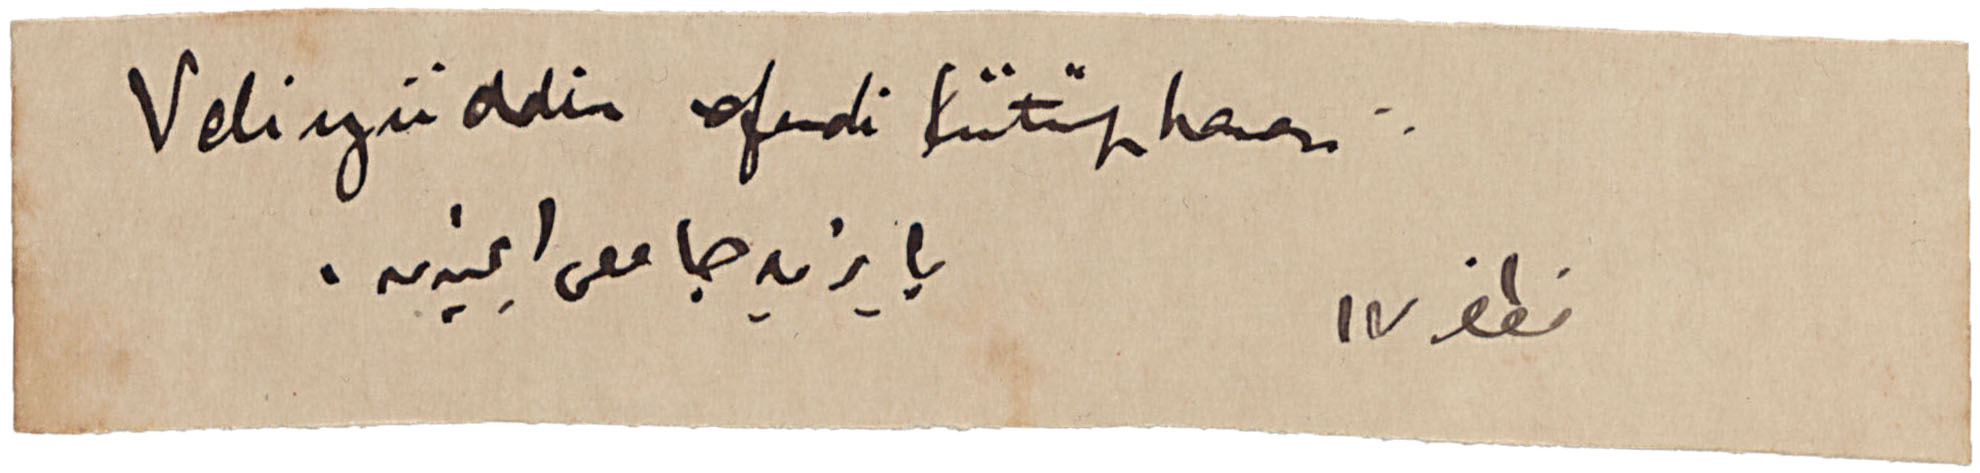 Veliyüddin efendi kütüphanesi
بايزيد جامعى ايچنده .
١٧